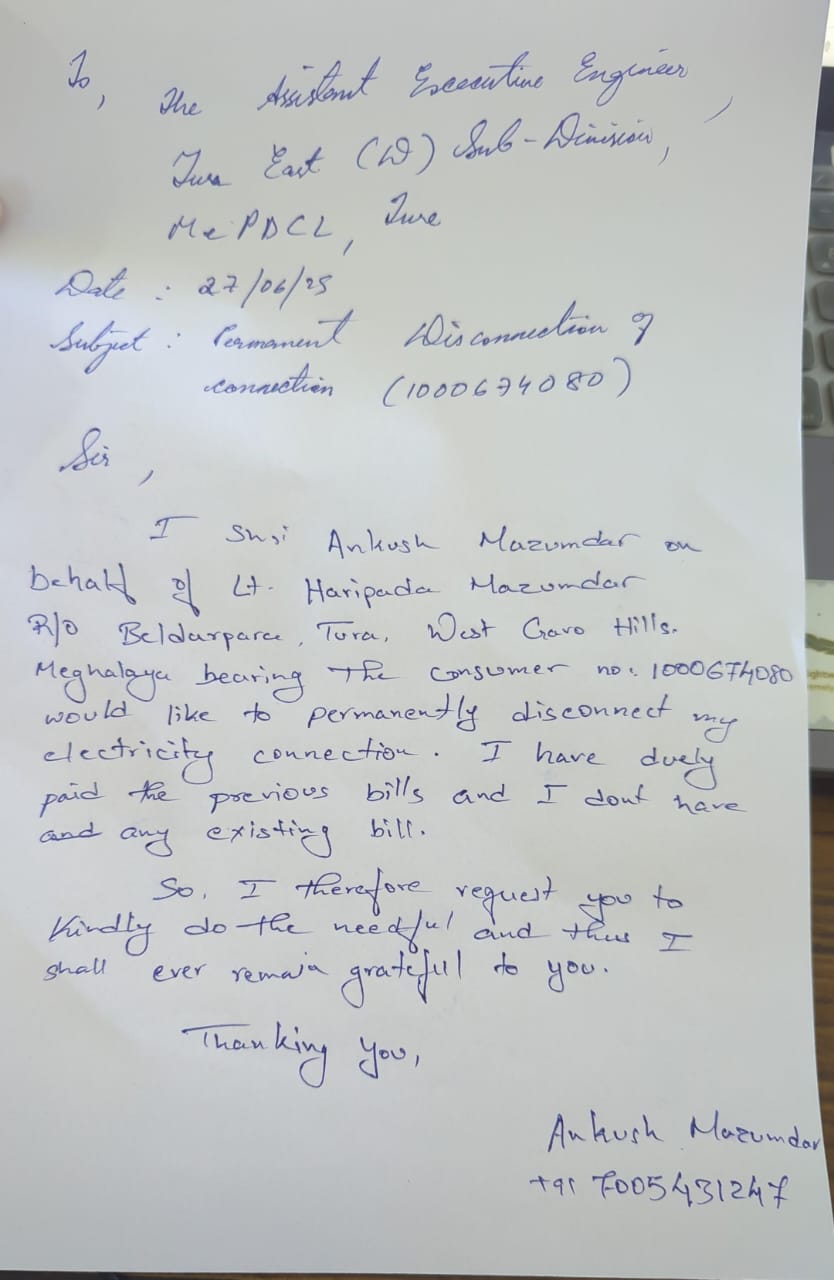 To,
The Assistant Executive Engineer,
Tura East (D) Sub-Division,
MePDCL, Tura
Date : 27/06/25
Subject : Permanent Disconnection of
connection (1000674080)
Sir,
I Shri Ankush Mazumdar on
behalf of Lt. Haripada Mazumdar
R/o Beldarparee, Tura, West Garo Hills.
Meghalaya bearing the consumer no: 1000674080
would like to permanently disconnect my
electricity connection. I have duely
paid the previous bills and I dont have
and any existing bill.
So, I therefore request you to
kindly do the needful and thus I
shall ever remain grateful to you.
Thanking you,
Ankush Mazumdar
+91 7005431247